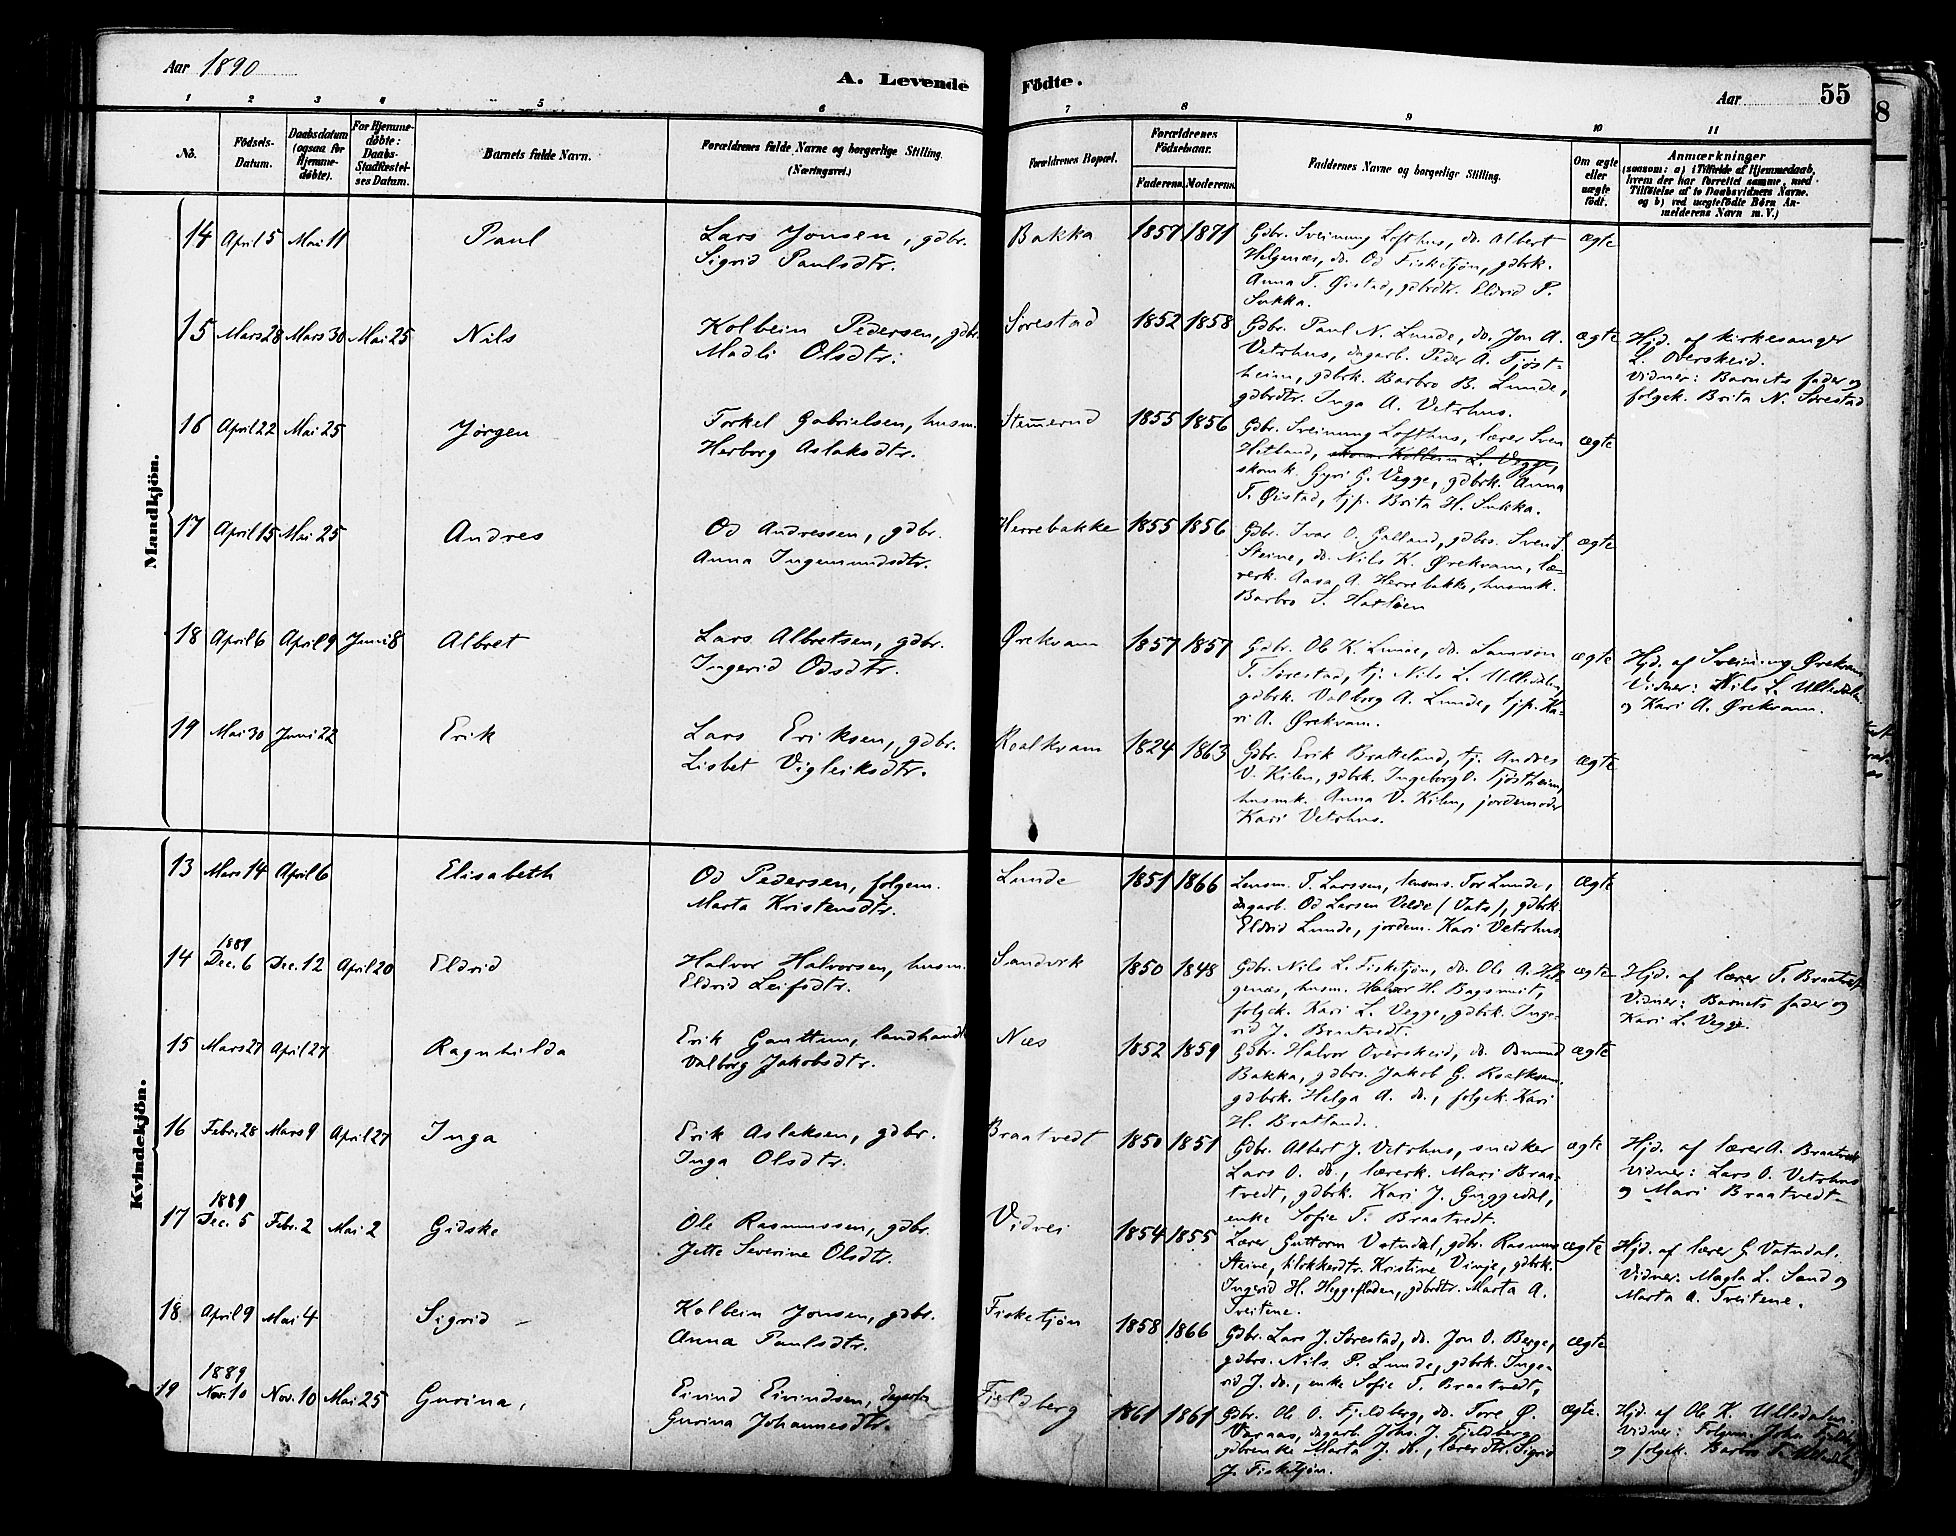 Aar 1890
A. Levende Födte.
Aar 55
1 2 3 4 5 6 7 8 9 10 11
No.
Födsels-
Datum.
Daabsdatum
(ogsaa for
Hjemme-
døbte).
For Hjemme-
døbte:
Daabs-
Stadfæstel-
ses Datum.
Barnets fulde Navn.
Forældrenes fulde Navne og borgerlige Stilling.
(Næringsvei.)
Forældrenes Bopæl.
Forældrenes
Födselsaar.
Faderens. Moderens.
Faddernes Navne og borgerlige Stilling.
Om ægte
eller
uægte
født.
Anmærkninger
(saasom: a) i Tilfælde af Hjemmedaab,
hvem der har forrettet samme, med
Tilføielse af to Daabsvidners Navne,
og b) ved uægtefødte Børn An-
melderens Navn m. V.)
Mandkjön.
14 April 5 Mai 11 Paul
Lars Jonsen, gdbr.
Sigrid Paulsdtr.
Bakka 1857 1871
Gdbr. Sveinung Lofthus, do. Albert
Helgenæs, do. Od Fisketjøn, gdbrk.
Anna T. Øistad, gdbrdtr. Eldrid P.
Sukka.
ægte
15 Mars 28 Mars 30 Mai 25 Nils
Kolbein Pedersen, gdbr.
Madli Olsdtr.
Sørestad 1852 1858
Gdbr. Paul N. Lunde, do. Jon A.
Vetrhus, dagarb. Peder A. Tjøst-
heim, gdbrk. Barbro B. Lunde,
gdbrdtr. Inga A. Vetrhus.
ægte
Hjd. af kirkesanger
L. Overskeid.
Vidner: Barnets fader og
folgek. Brita N. Sørestad
16 April 22 Mai 25 Jørgen
Torkel Gabrielsen, husm.
Herborg Aslaksdtr.
Stemerud 1855 1856
Gdbr. Sveinung Lofthus, lærer Sven
Hetland, skom. Kolbein L. Vegge,
skomk. Gyri G. Vegge, gdbrk. Anna
T. Øistad, tjp. Brita H. Sukka.
ægte
17 April 15 Mai 25 Andres
Od Andressen, gdbr.
Anna Ingemundsdtr.
Herrebakke 1855 1856
Gdbr. Ivar O. Galland, gdbrs. Svend
Steine, do. Nils K. Ørekvam, læ-
rerk. Aasa A. Herrebakke, husmk.
Barbro S.
ægte
18 April 6 April 9 Juni 8 Albret
Lars Albretsen, gdbr.
Ingerid Odsdtr.
Ørekvam 1857 1857
Gdbr. Ole K. Lunde, do. Samson
T. Sørestad, tj. Nils L. Ulledalen,
gdbrk. Valborg A. Lunde, tjp. Ka-
ri A. Ørekvam.
ægte
Hjd. af Sveinung Ørekvam
Vidner: Nils L. Ulledalen
og Kari A. Ørekvam.
19 Mai 30 Juni 22 Erik
Lars Eriksen, gdbr.
Lisbet Vigleiksdtr.
Roalkvam 1824 1863
Gdbr. Erik Bratteland, tj. Andres
V. Kilen, gdbrk. Ingeborg O. Tjøstheim,
husmk. Anna V. Kilen, jordemoder
Kari Vetrhus.
ægte
Kvindekjön.
13 Mars 14 April 6 Elisabeth
Od Pedersen, folgem.
Marta Kristensdtr.
Lunde 1851 1866
Lensm. T. Larssen, lensms. Tor Lunde,
dagarb. Od Larsen Velde (Vats), gdbrk.
Eldrid Lunde, jordem. Kari Vetrhus
ægte
14 1889 Dec. 6 Dec. 12 April 20 Eldrid
Halvor Halvorsen, husm.
Eldrid Leifsdtr.
Sandvik 1850 1848
Gdbr. Nils L. Fisketjøn, do. Ole A. Hel-
genæs, husm. Halvor H. Bagsmit,
folgek. Kari L. Vegge, gdbrk. Inge-
rid J. Braatvedt.
ægte
Hjd. af lærer T. Braatvedt
Vidner: Barnets fader og
Kari L. Vegge.
15 Mars 27 April 27 Ragnhilda
Erik Gauttun, landhandl.
Valborg Jakobsdtr.
Næs 1852 1859
Gdbr. Halvor Overskeid, do. Osmund
Bakka, gdbrs. Jakob G. Roalkvam,
gdbrk. Helga A. do., folgek. Kari
H. Bratland.
ægte
16 Febr. 28 Mars 9 April 27 Inga
Erik Aslaksen, gdbr.
Inga Olsdtr.
Braatvedt 1850 1851
Gdbr. Albert J. Vetrhus, snedker
Lars O. do., lærerk. Mari Braa-
tvedt, gdbrk. Kari J. Guggedal,
enke Sofie T. Braatvedt.
ægte
Hjd. af lærer A. Braatvedt
Vidner: Lars O. Vetrhus
og Mari Braatvedt
17 1889 Dec. 5 Febr. 2 Mai 2 Gidske
Ole Rasmussen, gdbr.
Jette Severine Olsdtr.
Vidvei 1854 1855
Lærer Guttorm Vatndal, gdbr. Rasmus
Steine, klokkerdtr. Kristine Vinje, gdbrk.
Ingerid H. Heggefladen, gdbrdtr. Marta A.
Tveitene.
ægte
Hjd. af lærer G. Vatndal.
Vidner: Magla L. Sand og
Marta A. Tveitene.
18 April 9 Mai 4 Sigrid
Kolbein Jonsen, gdbr.
Anna Paulsdtr.
Fisketjøn 1858 1866
Gdbr. Lars J. Sørestad, do. Jon O. Berge,
gdbrs. Nils P. Lunde, gdbrk. Inge-
rid J. do., enke Sofie T. Braatvedt,
ægte
19 1889 Nov. 10 Nov. 10 Mai 25 Gurina,
Eivind Eivindsen, dagarb.
Gurina Johannesdtr.
Fjeldberg 1861 1861
Gdbr. Ole O. Fjeldberg, do. Tore Ø.
Varaas, dagarb. Johs. J. Fjeldberg,
gdbrenke Marta J. do., lærerdtr. Sigrid
J. Fisketjøn.
ægte.
Hjd. af Ole K. Ulledalen.
Vidner: Folgem. John
og folgek. Barbro T. Ulledalen